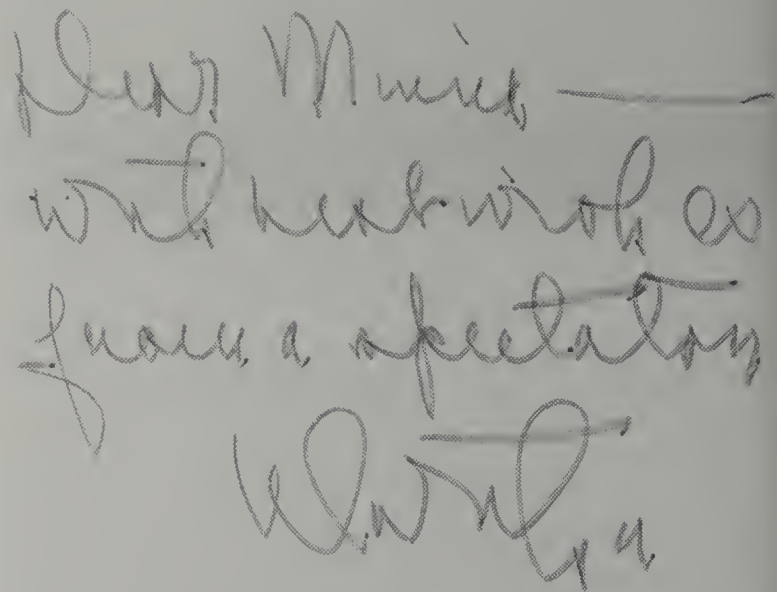 Dear Muriel —
with best wishes
from a spectator